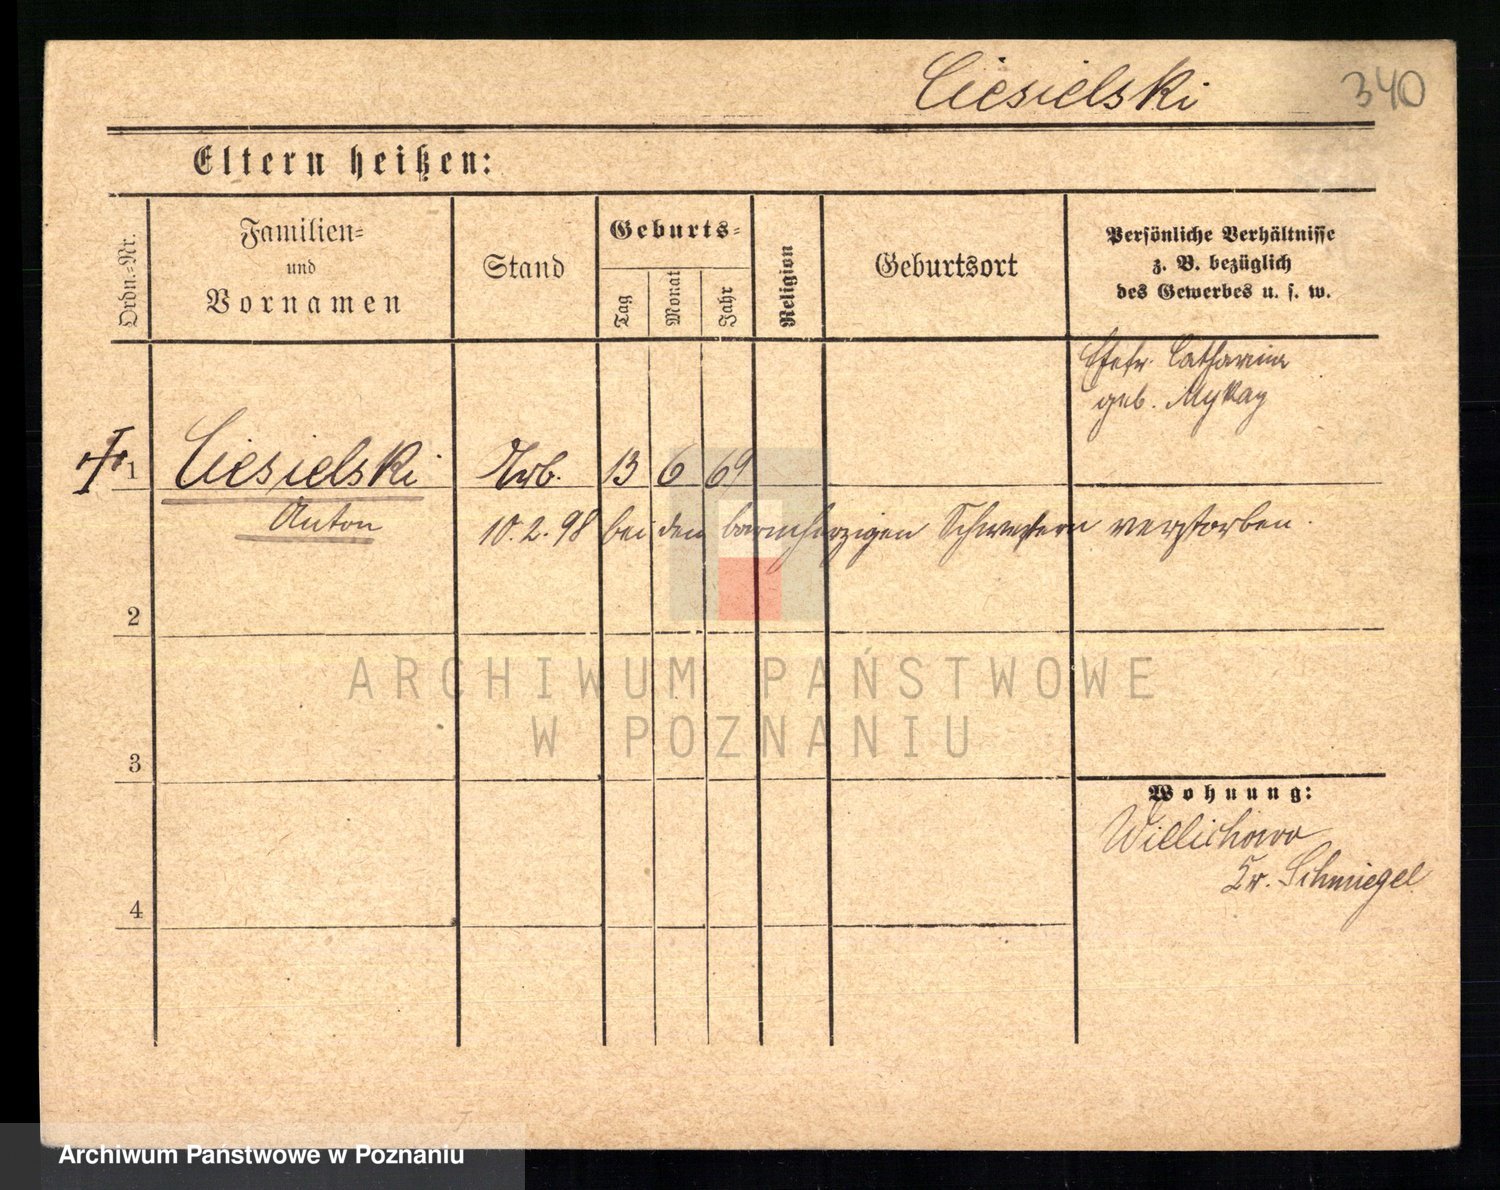 Ciesielski 340
Eltern heißen:
Ordn.-Nr.
Familien-
und
Vornamen
Stand
Geburts-
Tag
Monat
Jahr
Religion
Geburtsort
Persönliche Verhältnisse
z. B. bezüglich
des Gewerbes u. s. w.
Ehefr. Catharina
geb. Mykay
1 Ciesielski Arb. 13 6 69
Anton 10.2.98 bei den barmherzigen Schwestern verstorben.
2
3
4
Wohnung:
Wielichowo
Kr. Schmiegel
ARCHIWUM PAŃSTWOWE
W POZNANIU
Archiwum Państwowe w Poznaniu